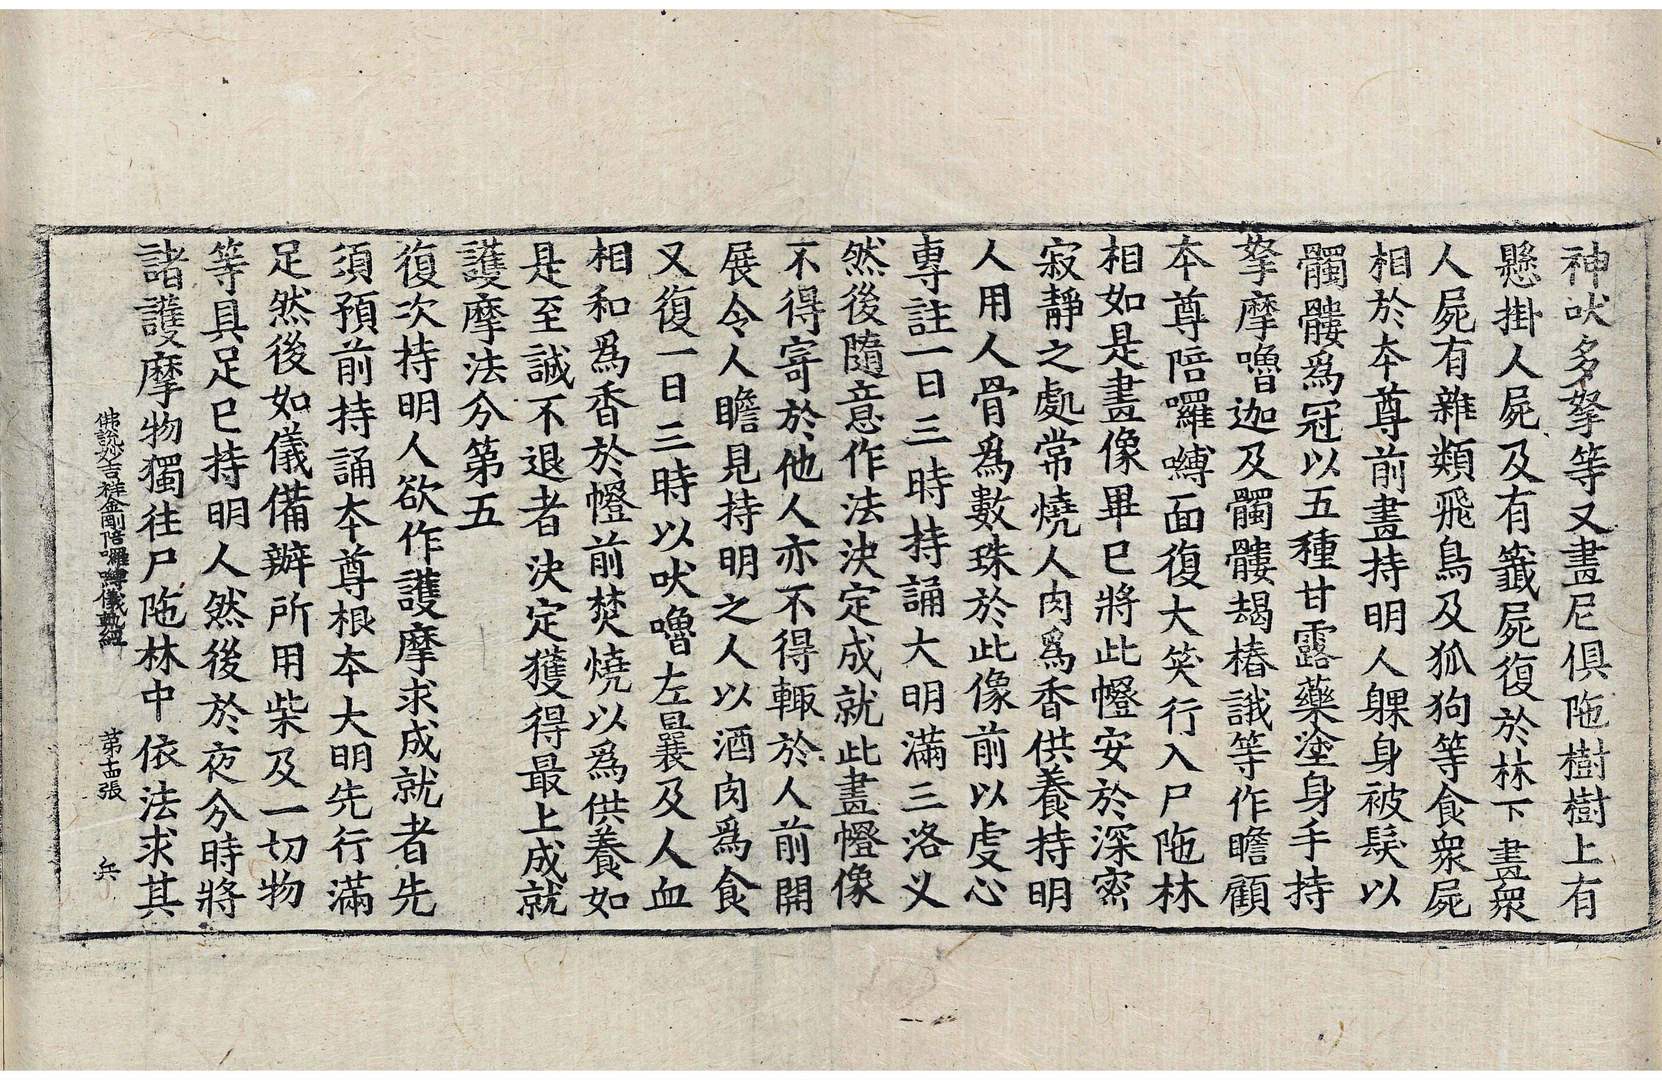 神吠多拏等又畫尼俱陁樹樹上有
懸掛人屍及有籤屍復於林下畫衆
人屍有雜類飛鳥及狐狗等食衆屍
相於夲尊前畫持明人躶身被髮以
髑髏爲冠以五種甘露藥塗身手持
拏摩嚕迦及髑髏朅樁誐等作瞻顧
夲尊陪囉嚩面復大笑行入尸陁林
相如是畫像畢已將此㡧安於深密
寂靜之處常燒人肉爲香供養持明
人用人骨爲數珠於此像前以䖍心
專註一日三時持誦大明滿三洛乂
然後隨意作法決定成就此畫㡧像
不得寄於他人亦不得輙於人前開
展令人瞻見持明之人以酒肉爲食
又復一日三時以吠嚕左曩及人血
相和爲香於㡧前焚燒以爲供養如
是至誠不退者決定獲得最上成就
護摩法分第五
復次持明人欲作護摩求成就者先
須預前持誦夲尊根夲大明先行滿
足然後如儀備辦所用柴及一切物
等具足已持明人然後於夜分時將
諸護摩物獨往尸陁林中依法求其
佛說妙吉祥金剛陪囉嚩儀軌經 第盂張 兵